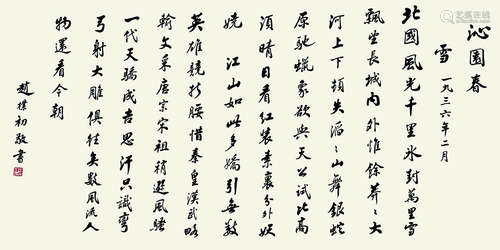 沁園春
雪 一九三六年二月
北國風光千里冰封萬里雪
飄望長城內外惟餘莽々大
河上下頓失滔々山舞銀蛇
原馳蠟象欲與天公試比高
須晴日看紅裝素裹分外妖
嬈 江山如此多嬌引無數
英雄競折腰惜秦皇漢武略
輸文采唐宗宋祖稍遜風騷
一代天驕成吉思汗只識彎
弓射大雕俱往矣數風流人
物還看今朝
趙樸初敬書